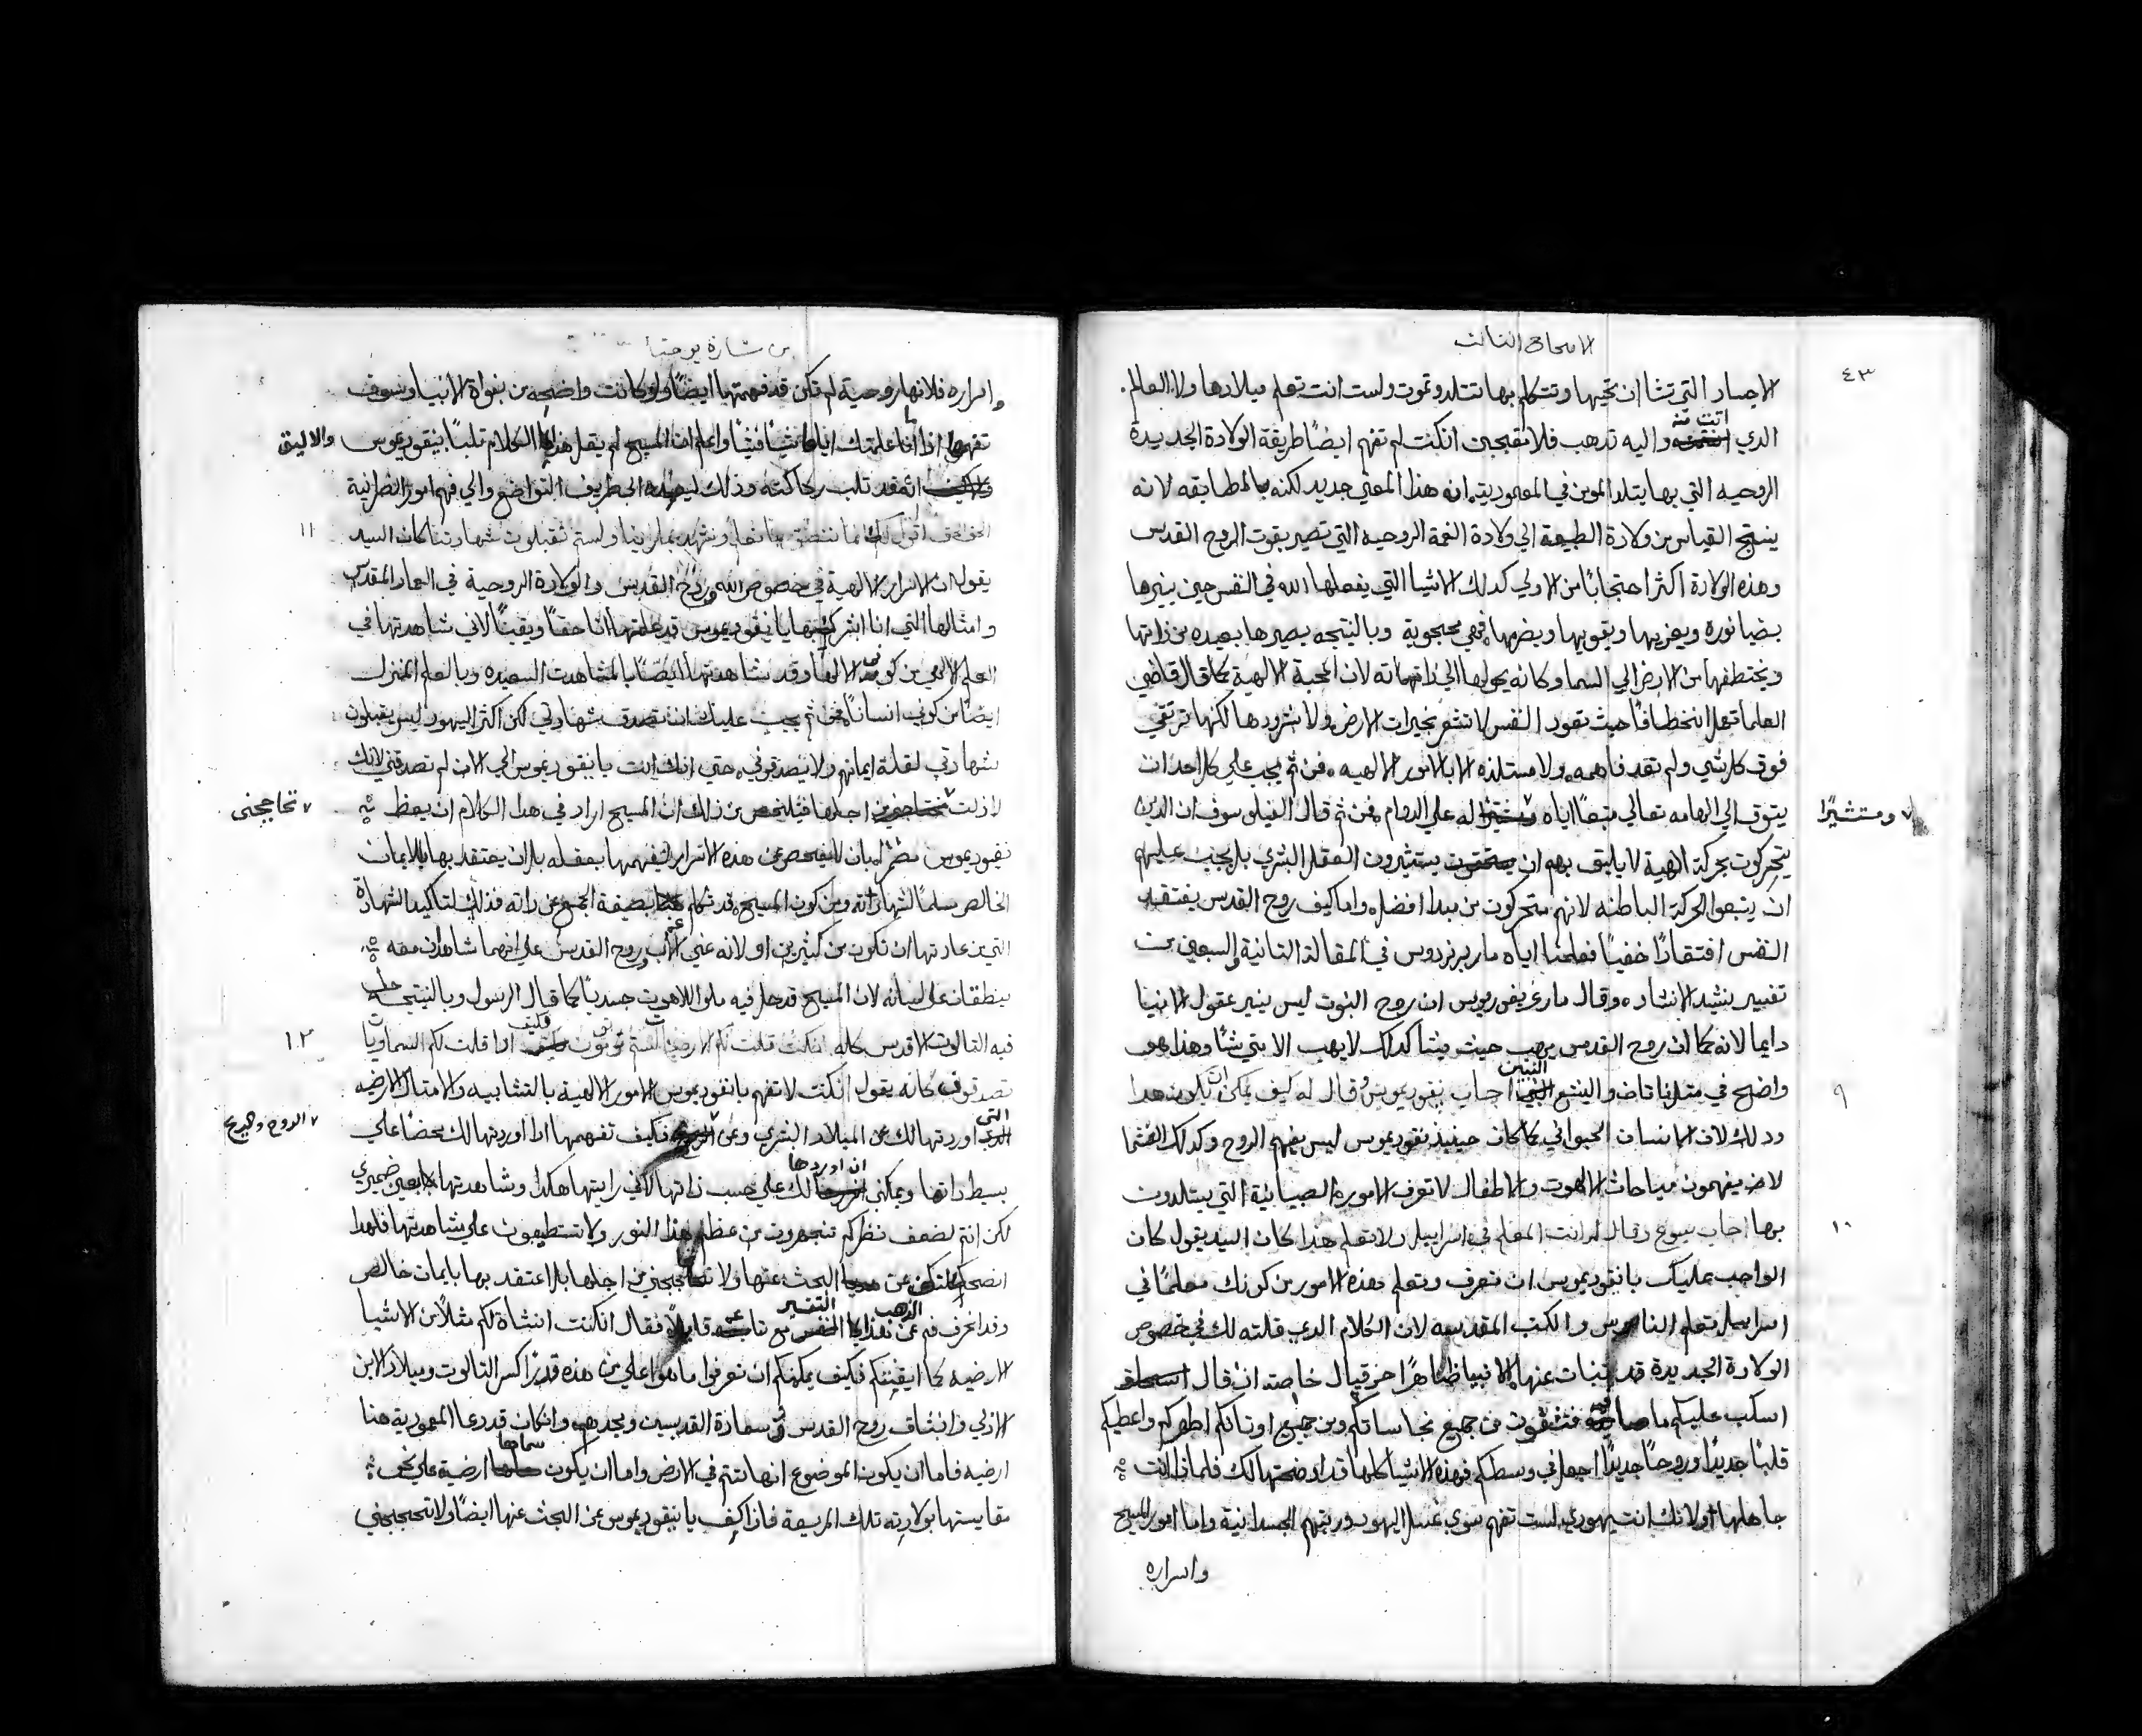 الاصحاح الثالث
٤٣
الاجساد التي تشا ان تحييها وتتكلم بها تتلد وتموت ولست انت تعلم ميلادها ولا العالم.
الذي اتت منه واليه تذهب فلا تتعجبن ان كنت لم تفهم ايضًا طريقة الولادة الجديدة
الروحيه التي بها يتلد المومن في المعمودية ان هذا المعني جديد لكنه بالمطابقه لانه
ينتج القياس من ولادة الطبيعة الي ولادة النعمة الروحيه التي تصير بقوت الروح القدس
وهذه الولادة اكثر احتجابًا من الاولي كذلك الاشيا التي يفعلها الله في النفس حين ينيرها
بضيا نوره ويعزيها ويقويها ويضرمها فهي محجوبة وبالنتيجه يصيرها بعيده من ذاتها
ويختطفها من الارض الي السما وكانه يحولها الي ذاته لان المحبة الالهية كما قال قاضي
العلما تعمل انخطافًا حيث تعود النفس لا تشعر بخيرات الارض ولا بشرورها لكنها ترتقي
فوق كل شي ولم تعد فاهمه ولا مستلذه الا بالامور الالهيه فمن ثم يجب علي كل احد ان
يتوق الي الهامه تعالي متبعًا اياه له علي الدوام فمن ثم قال الفيلسوف ان الذين
ومستشيرًا
يتحركون بحركة الاهية لا يليق بهم ان يستشيرون العقل البشري بل يجب عليهم
ان يتبعوا الحركة الباطنه لانهم متحركون من مبدا افضل واما كيف روح القدس يفتقد
النفس افتقادًا خفيًا فعلمنا اياه مار برنردوس في المقالة الثانية والسبعين من
تفسير نشيد الانشاد وقال مار غريغوريوس ان روح النبوت ليس ينير عقول الانبيا
دايما لانه كما ان روح القدس يهب حيث يشا كذلك لا يهب الا متي شا وهذا هو
واضح في مثل ناتان واليشع النبيين اجاب نيقوديموس وقال له كيف يمكن ان يكون هذا
٩
وذلك لان الانسان الحيواني كما كان حينيذ نيقوديموس ليس يفهم الروح وكذلك الغشما
لا يفهمون مباحاث الاهوت والاطفال لا تعرف الامور الصبيانية التي يتلذذون
بها اجاب يسوع وقال له انت المعلم في اسراييل ولا تعلم هذا كان السيد يقول كان
١٠
الواجب عليك يا نيقوديموس ان تعرف وتعلم هذه الامور من كونك معلمًا في
اسراييل تعلم الناموس والكتب المقدسه لان الكلام الذي قلته لك في خصوص
الولادة الجديدة قد تنبات عنها الانبيا ظاهرًا حزقيال خاصة ان قال
اسكب عليكم ما فتنقون من جميع نجاساتكم ومن جميع اوثانكم اطهركم واعطيكم
قلبًا جديدًا وروحًا جديدًا اجعل في وسطكم فهذه الاشيا كلها قد اوضحتها لك فلماذا انت
جاهلها اولانك انت يهودي لست تفهم سوي غسل اليهود ورتبهم الجسدانية واما امور المسيح
واسراره
من بشارة يوحنا
واسراره فلانها روحية لم تكن قد فهمتها ايضًا ولو كانت واضحه من نبواة الانبيا وسوف
تفهمها اذا انا علمتك اياها شيًا فشيًا واعلم ان المسيح لم يقل هذا الكلام ثلبًا بنيقوديموس والاليق
انه قد ثلب ركاكته وذلك ليجذبه الي طريق التواضع والي فهم امور النصرانية
الحق اقول لك اننا ننطق بما نعلم ونشهد بما راينا ولستم تقبلون شهادتنا كان السيد
١١
يقول ان الاسرار الالهية في خصوص الله وروح القدس والولادة الروحية في العماد المقدس
وامثالها التي انا ابشرك بها يا نيقوديموس قد علمتها انا حقًا ويقينًا لاني شاهدتها في
العلم الالهي من كوني الاهًا وقد شاهدتها ايضًا بالمشاهدت السعيده وبالعلم المنزل
ايضًا من كوني انسانًا فمن ثم يجب عليك ان تصدق شهادتي لكن اكثر اليهود ليس يقبلون
شهادتي لقلة ايمانهم ولا يصدقوني حتي انك انت يا نيقوديموس الي الان لم تصدقني لانك
لا زلت من اجلها فيتلخص من ذلك ان المسيح اراد في هذا الكلام ان يعظ
تحاججني
نيقوديموس مضمرًا بان لا يفحص عن هذه الاسرار ليفهمها بعقله بل ان يعتقد بها بالايمان
الخالص مسلمًا لشهادته ومن كون المسيح قد تكلم بصيغة الجمع عن ذاته فذلك لتاكيد الشهادة
التي من عادتها ان تكون من كثيرين او لانه عني عن الاب وروح القدس علي انهما شاهدان معه
ينطقان علي لسانه لان المسيح قد حل فيه ملو اللاهوت جسديًا كما قال الرسول وبالنتيجه حل
فيه الثالوث الاقدس كله ان كنت قلت لكم الارضيات لستم تومنون فكيف اذا قلت لكم السماويات
١٢
تصدقون كانه يقول ان كنت لا تفهم يا نيقوديموس الامور الالهية بالتشابيه والامثال الارضيه
التي اوردتها لك عن الميلاد البشري وعن فكيف تفهمها اذا اوردتها لك محضًا علي
الروح والريح
بسيط ذاتها ويمكني ان اوردها لك علي حسب ذاتها لاني رايتها هكذا وشاهدتها بعين ضميري
لكن انتم لضعف نظركم تنبهرون من عظم هذا النور ولا تستطيعون علي مشاهدتها فلهذا
انصحك البحث عنها ولا تحاججني من اجلها بل اعتقد بها بايمان خالص
وقد انحرف فم الذهب عن هذا التفسير قايلًا فقال ان كنت انشاة لكم مثلًا من الاشيا
الارضيه كما ايقنتكم فكيف يمكنكم ان تعرفوا ما هو اعلي من هذه قدرًا كسر الثالوث وميلاد الابن
الازلي وانبثاق روح القدس وسعادة القديسين ومجدهم وان كان قد دعا المعمودية هنا
ارضيه فاما ان يكون الموضوع انها تتم في الارض واما ان يكون سماها ارضية علي نحو
مقايستها بولادته تلك المريعة فاذًا كف يا نيقوديموس عن البحث عنها ايضًا ولا تحججني